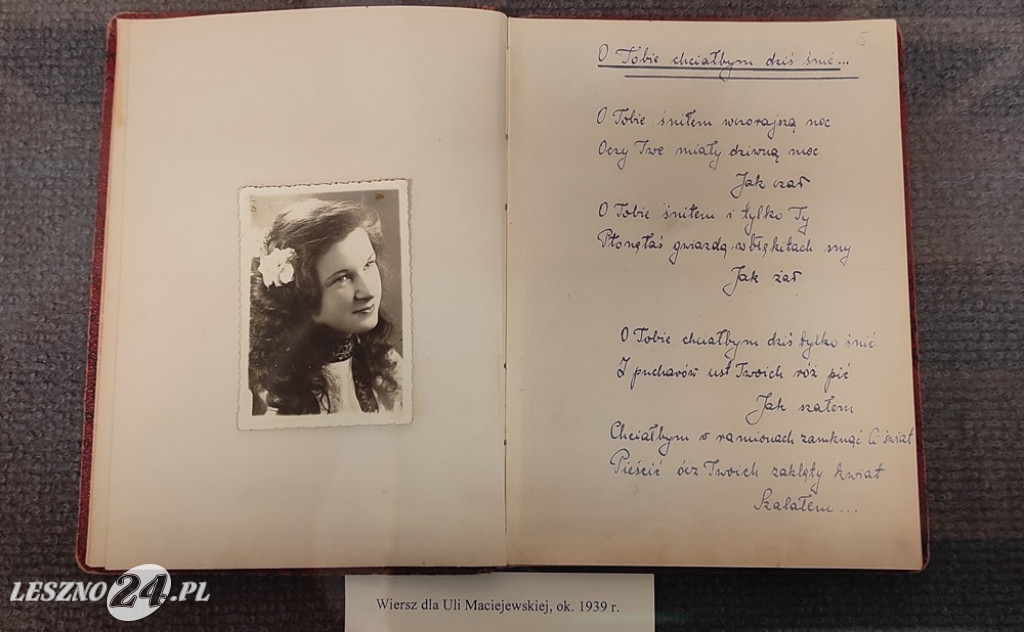 5
O Tobie chciałbym dziś śnić...
O Tobie śniłem wczorajszą noc
Oczy Twe miały dziwną moc
Jak czar
O Tobie śniłem i tylko Ty
Płonęłaś gwiazdą w błękitach my
Jak żar
O Tobie chciałbym dziś tylko śnić
I pucharów ust Twoich róż pić
Jak szałem
Chciałbym w ramionach zamknąć Ci świat
Pieścić ócz Twoich zaklęty kwiat
Szalałem...
Wiersz dla Uli Maciejewskiej, ok. 1939 r.
LESZNO24.PL